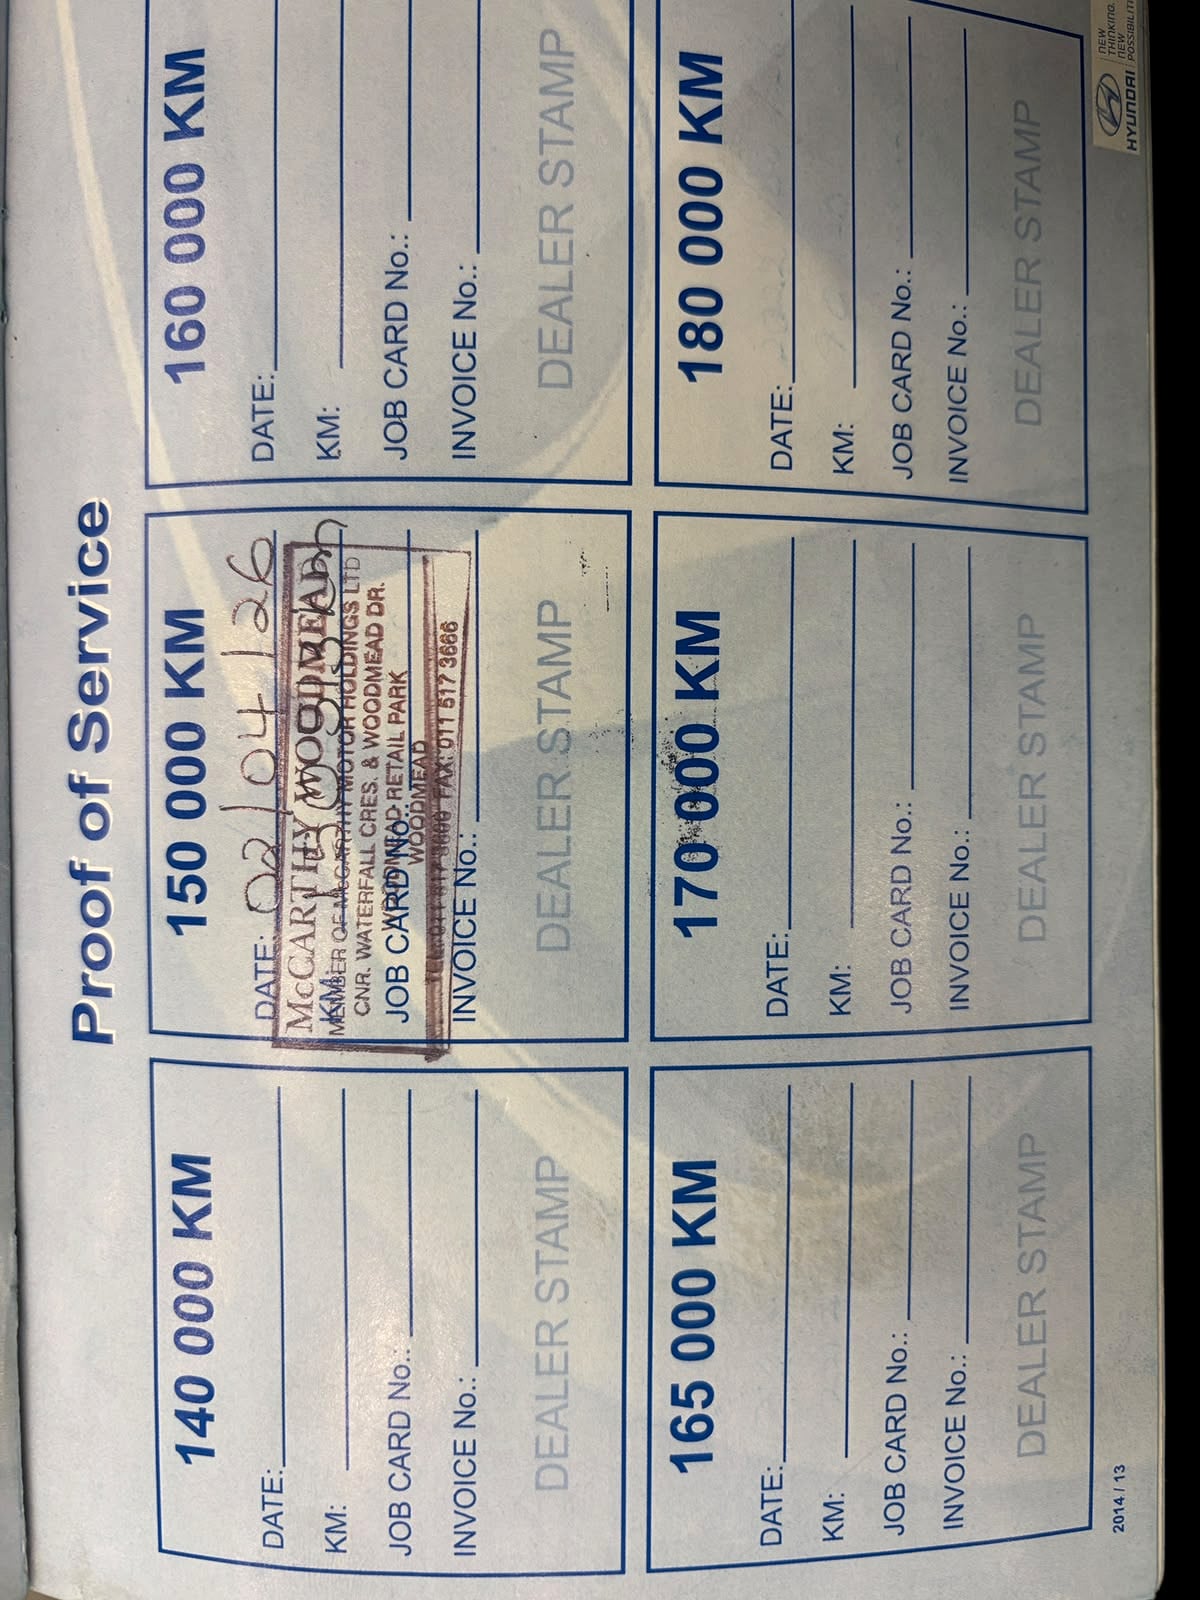 Proof of Service
140 000 KM
DATE:
KM:
JOB CARD No.:
INVOICE No.:
DEALER STAMP
150 000 KM
DATE: 02/04/26
KM:
McCARTHY WOODMEAD
MEMBER OF McCARTHY MOTOR HOLDINGS LTD
CNR. WATERFALL CRES. & WOODMEAD DR.
JOB CARD No.:
WOODMEAD RETAIL PARK
WOODMEAD
FAX: 011 517 3666
INVOICE No.:
DEALER STAMP
160 000 KM
DATE:
KM:
JOB CARD No.:
INVOICE No.:
DEALER STAMP
165 000 KM
DATE:
KM:
JOB CARD No.:
INVOICE No.:
DEALER STAMP
170 000 KM
DATE:
KM:
JOB CARD No.:
INVOICE No.:
DEALER STAMP
180 000 KM
DATE:
KM:
JOB CARD No.:
INVOICE No.:
DEALER STAMP
2014 / 13
HYUNDAI
NEW
THINKING.
NEW